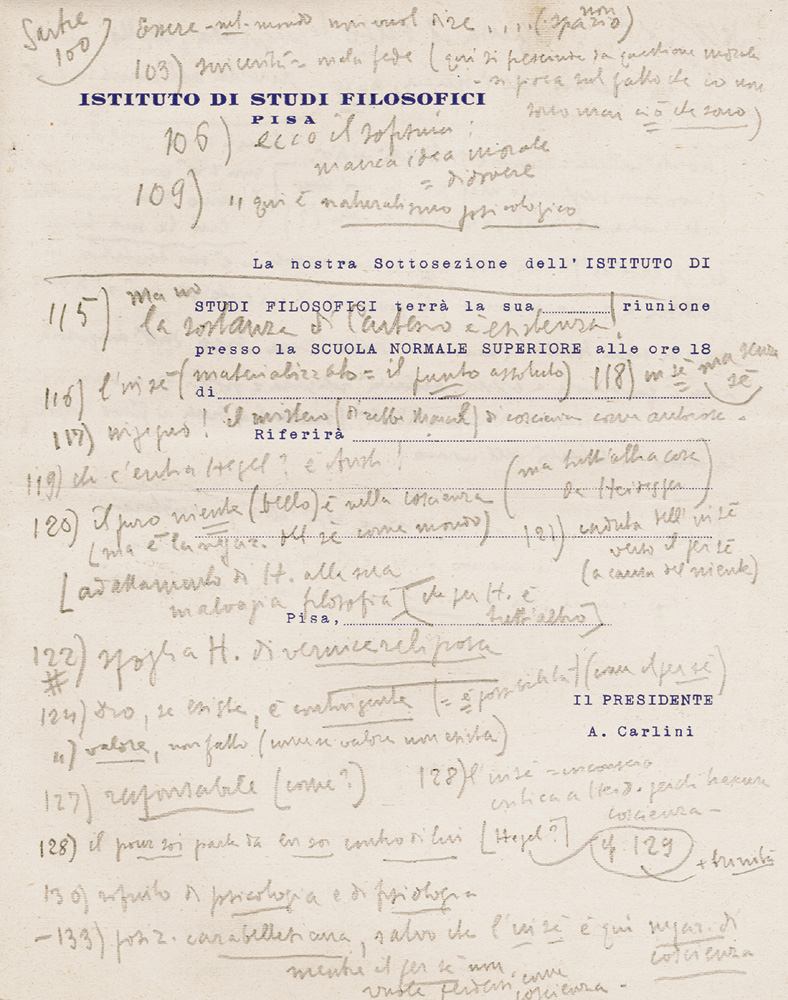 Sartre
100
Essere-nel-mondo non vuol dire .... (spazio)
non
103) sincerità = mala fede (qui si prescinde da questione morale
- si poca sul fatto che io non
ISTITUTO DI STUDI FILOSOFICI
sono mai ciò che sono)
PISA
106) ecco il sofisma:
manca idea morale
= di dovere
109) " qui è naturalismo psicologico
La nostra Sottosezione dell'ISTITUTO DI
115) ma no
STUDI FILOSOFICI terrà la sua riunione
la sostanza di è esistenza!
presso la SCUOLA NORMALE SUPERIORE alle ore 18
116) l'in sé (materializzato = il punto assoluto) 118) in sé ma senza
sé
di
117) ingegno! il mistero (direbbe Marcel) di coscienza come
Riferirà
119) che c'entra Hegel? è !
(ma tutt'altra cosa
da Heidegger)
120) il puro niente (bello) è nella coscienza
(ma è la negaz. del sé come mondo)
121) caduta dell'in sé
verso il per sé
(a causa del niente)
[adattamento di H. alla sua
malvagia filosofia [che per H. è
tutt'altro]
Pisa,
122) spoglia H. di vernice religiosa
#
124) Dio, se esiste, è contingente (= è possibilità) (come il per sé)
Il PRESIDENTE
A. Carlini
") valore, non fatto (come se valore non esista)
127) responsabile (come?)
128) l'in sé = inconscio
critica a Heid. perché trascura
coscienza -
128) il pour soi parte da en soi contro di lui [Hegel?]
cf. 129
+ trinità
130) rifiuto di psicologia e di fisiologia
- 133) posiz. carabellesiana, salvo che l'in sé è qui negaz. di
coscienza
mentre il per sé non
vuole perdersi come
coscienza -